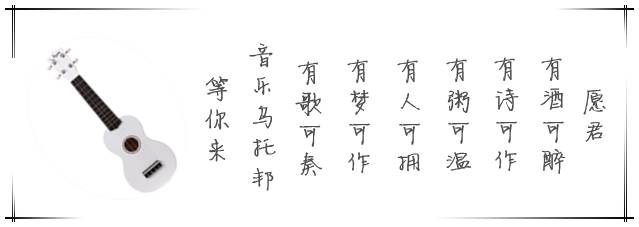 愿君
有酒可醉
有诗可作
有粥可温
有人可拥
有梦可作
有歌可奏
音乐乌托邦
等你来